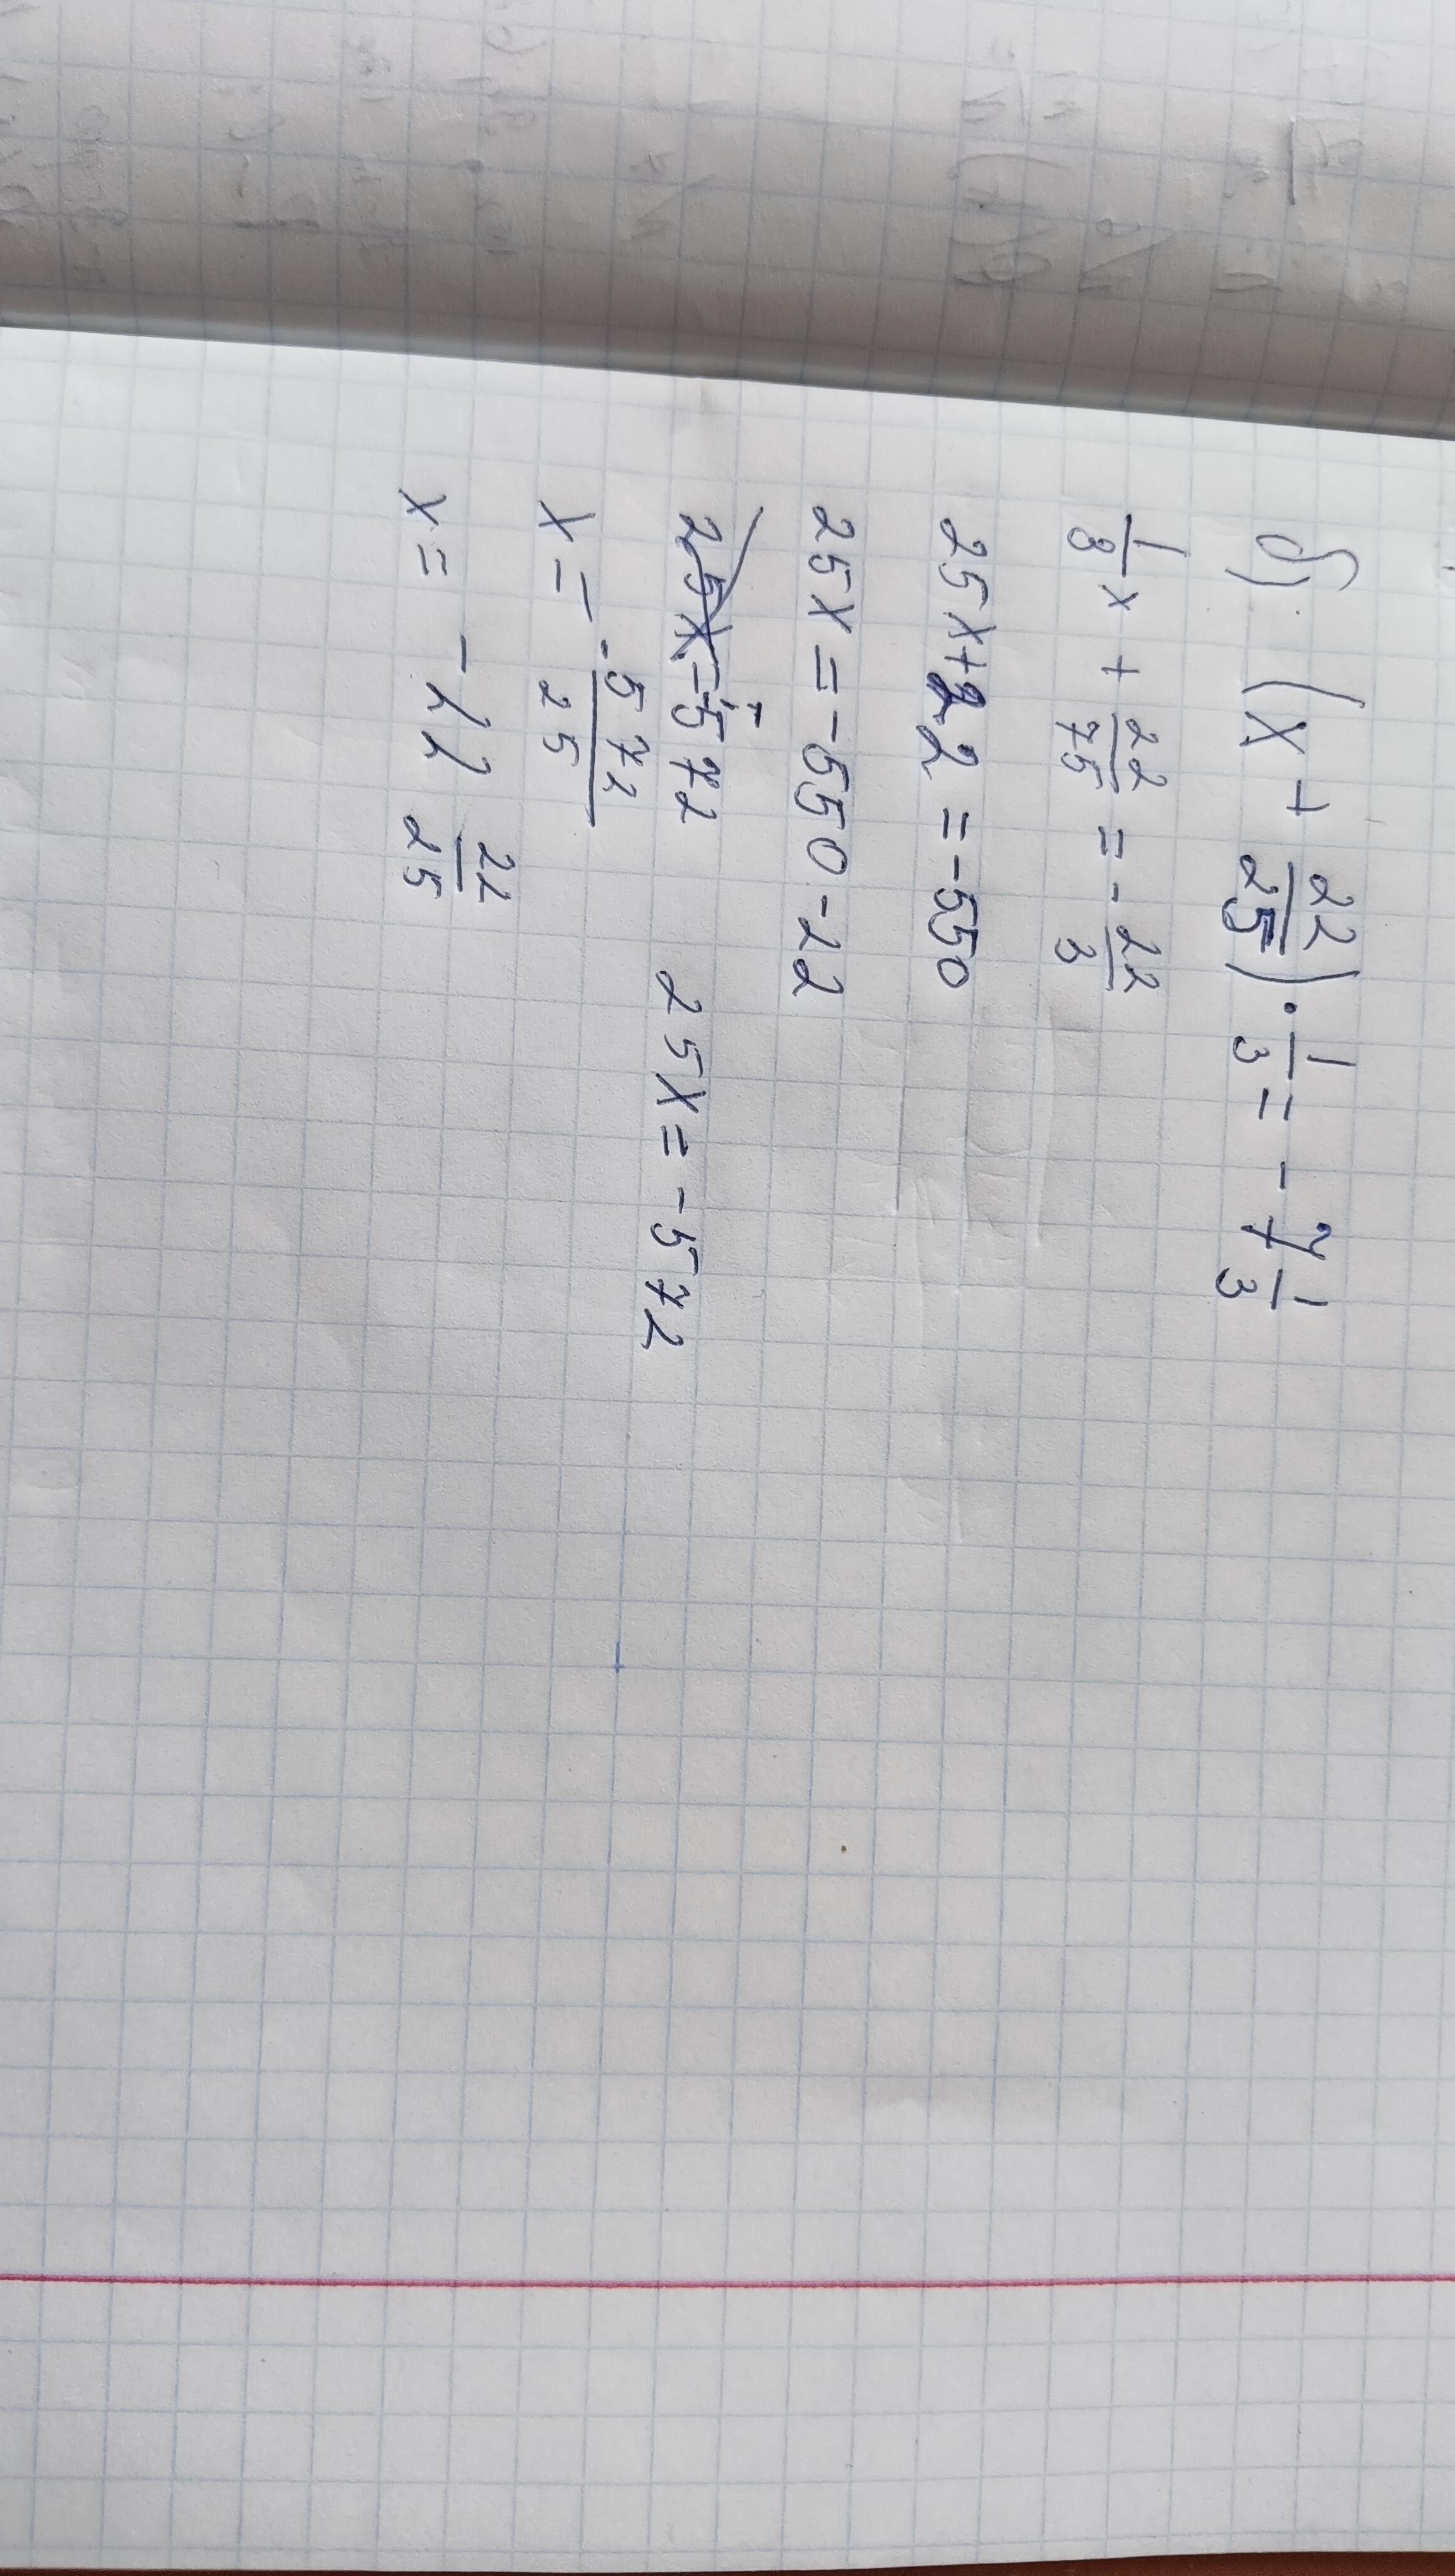 б) (x + 22/25) · 1/3 = - 7 1/3
1/3 x + 22/75 = - 22/3
25x + 22 = -550
25x = -550 - 22
25x = -572
x = - 572/25
x = - 22 22/25